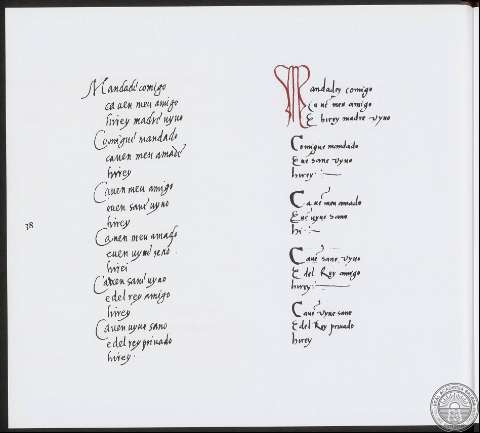 Mandad' comigo
ca uen meu amigo
hirey madre uyuo
Comigue mandado
ca uen meu amado
hirey
Ca uen meu amigo
euen sane uyuo
hirey
Ca uen meu amado
euen uyue sano
hirei
Ca uen sane uyuo
e del rey amigo
hirey
Ca uen uyue sano
e del rey priuado
hirey.
38
Mandadey comigo
Ca ué meu amigo
E hirey madre uyuo
Comigue mandado
E ué sane uyuo
hirey:
Ca ué meu amado
E ué uyue sano
hi:
Caué sane uyuo
E del Rey amigo
hirey:
Caué uyue sano
E del Rey priuado
hirey